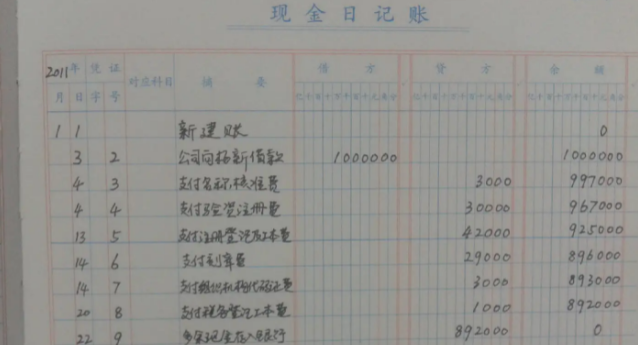 现金日记账
2011年 凭证 对应科目 摘要 借方 贷方 余额
月 日 字 号 亿千百十万千百十元角分 亿千百十万千百十元角分 亿千百十万千百十元角分
1 1 新建账 0
3 2 公司向杨新借款 1000000 1000000
4 3 支付名称核准费 3000 997000
4 4 支付验资注册费 30000 967000
13 5 支付注册登记及工本费 42000 925000
14 6 支付刻章费 29000 896000
14 7 支付组织机构代码证费 3000 893000
20 8 支付税务登记工本费 1000 892000
22 9 多余现金存入银行 892000 0